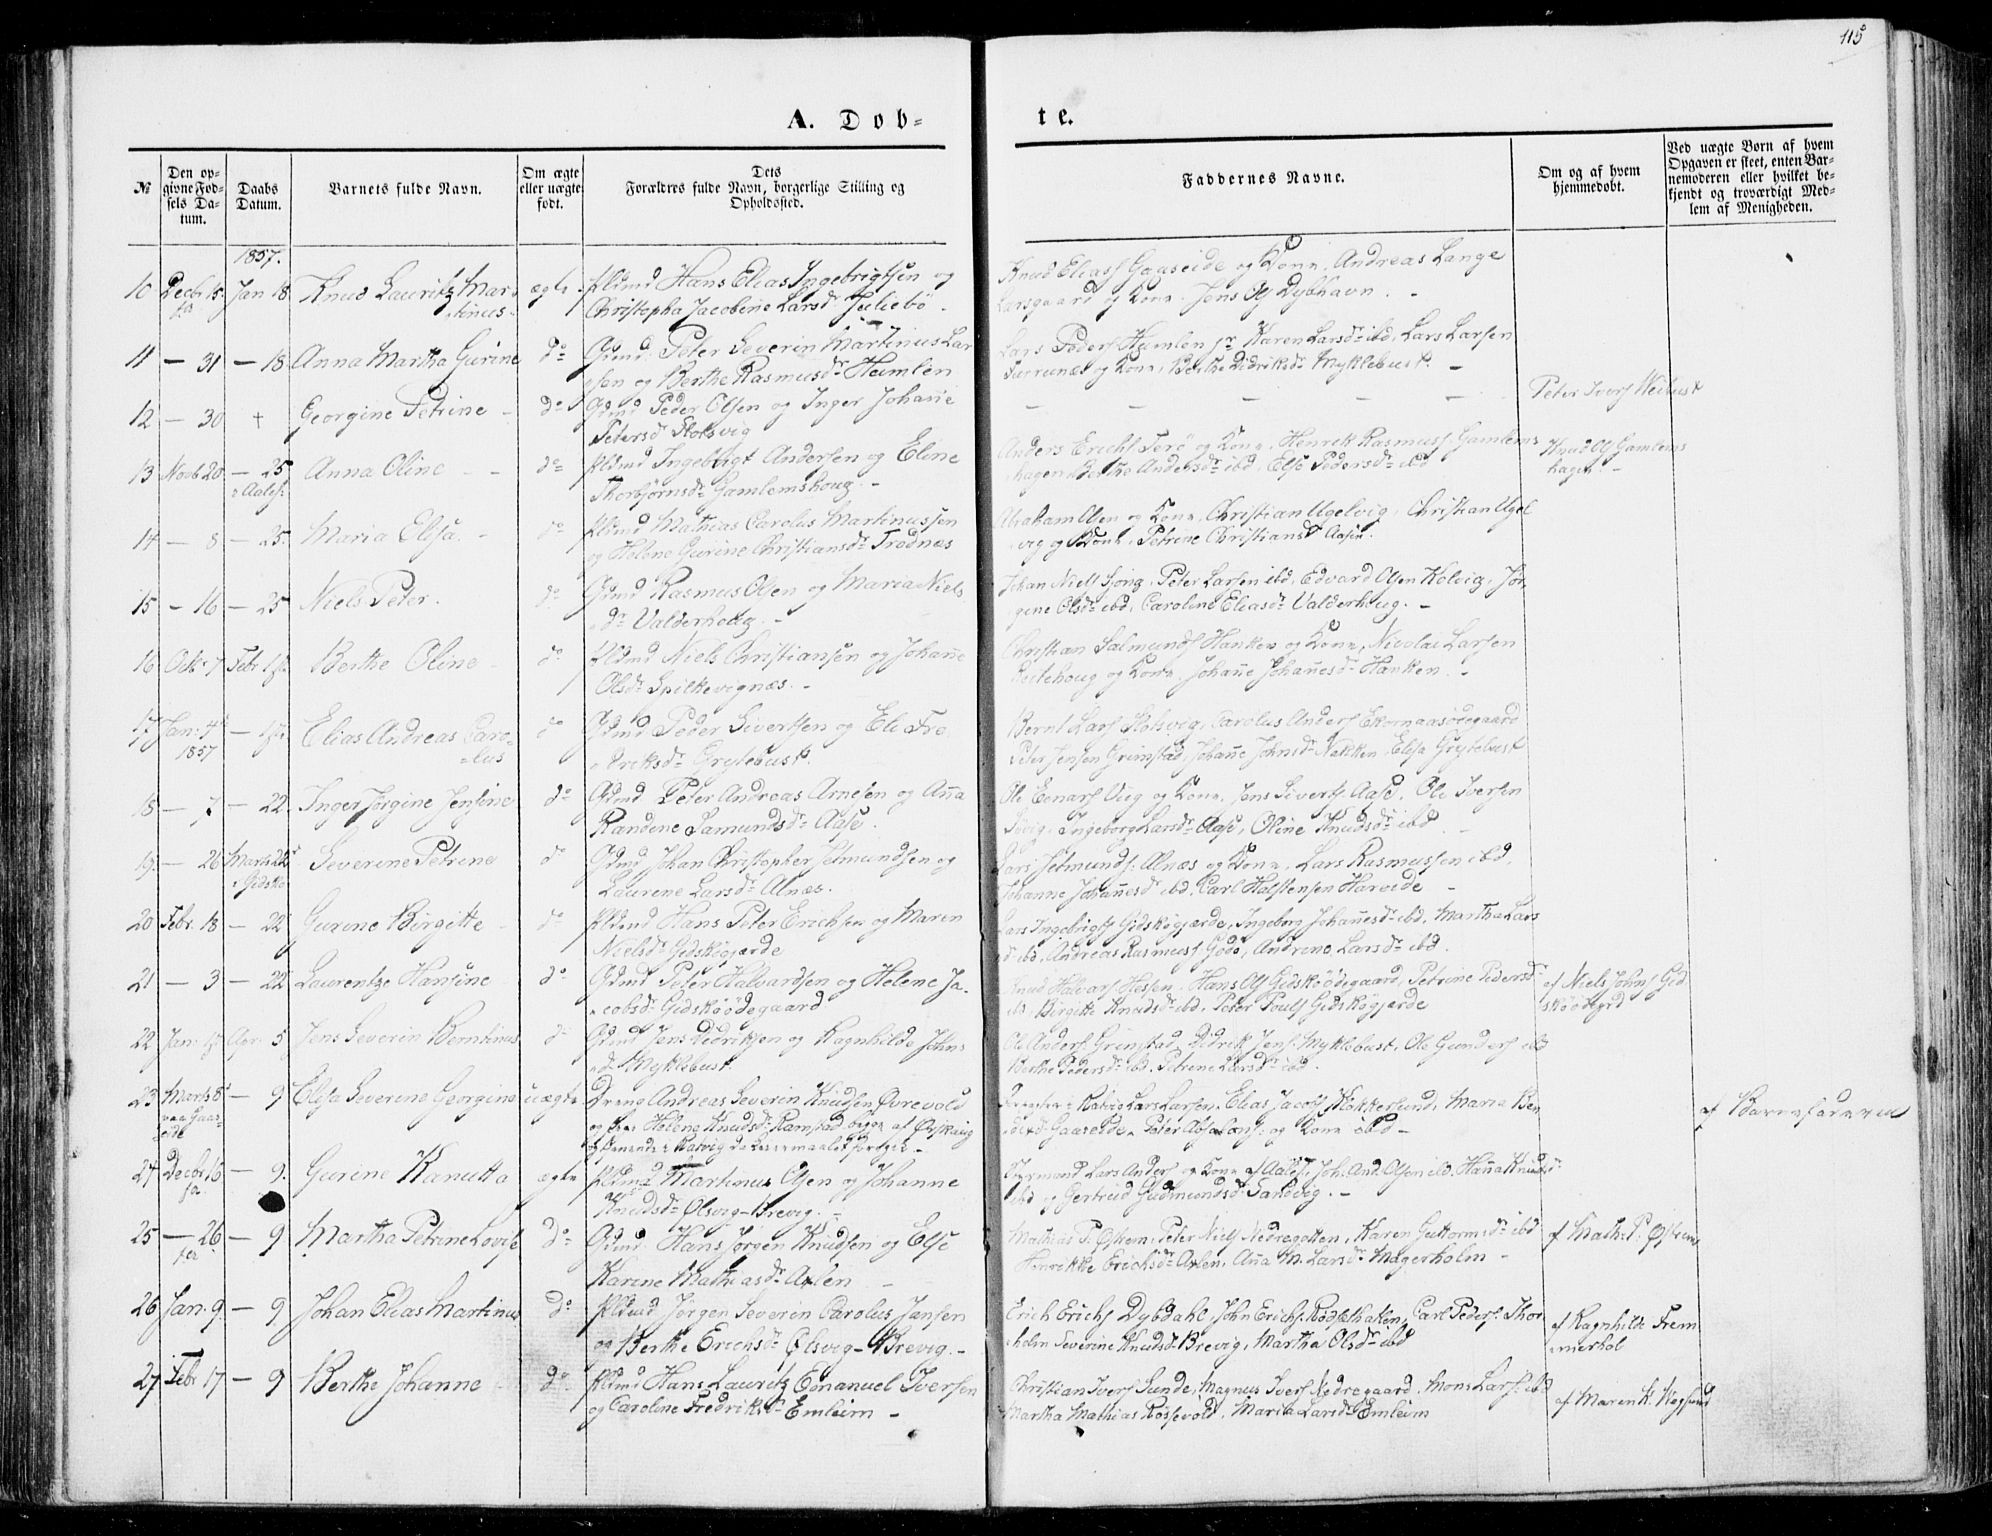 115
A. Døb-
te.
№
Den op-
givne Fød-
sels Da-
tum.
Daabs
Datum.
Barnets fulde Navn.
Om ægte
eller uægte
født.
Dets
Forældres fulde Navn, borgerlige Stilling og
Opholdssted.
Faddernes Navne.
Om og af hvem
hjemmedøbt.
Ved uægte Børn af hvem
Opgaven er skeet, enten Bar-
nemoderen eller hvilket be-
kjendt og troværdigt Med-
lem af Menigheden.
1857.
10 Decbr 15 Jan 18 Knud Lauritz Mar- ægte Hans Elias Ingebrigtsen og
tinus Christopha Jacobine Larsd: Juliebø
Knud Eliass Gaaseide og Kone, Andreas Lange
Larsgaard og Kone. Jens Ols Dybhavn.
11 — 31 — 18 Anna Martha Gurine do Gdmd Peter Severin Martinus Lar-
sen og Berthe Rasmusdr Humlen
Lars Peders Humlen, Karen Larsdr ibd, Lars Larsen
og Kone, Berthe Didriksdr Myklebust.
12 — 30 + Georgine Petrine do Gdmd Peder Olsen og Inger Johañe
Petersd Slotsvig
Peter Ivers Weibust
13 Novb 20 — 25 Anna Oline do Ingebrigt Andersen og Eline
i Aales: Thorbjørnsdr Gamlemshoug
Anders Erichs Terø og Kone, Henrik Rasmuss Gamlems-
hagen, Berthe Andersdr ibd, Else Pedersdr ibd
Knud Ols Gamlems
hagen
14 — 8 — 25. Maria Elisa. do Mathias Carolus Martinussen
og Helene Gurine Christiansdr Frednes
Abraham Olsen og Kone, Christian Ugelvig, Christian Ugel
vig og Kone, Petrine Christiansd Aasen.
15 — 16 — 25 Niels Peter. do Gdmd Rasmus Olsen og Maria Niels
dr Valderhoug.
Johan Niels Gjøng, Peter Larsen ibd, Edvard Olsen Kolvig, Jør-
gine Olsdr ibd, Caroline Eliasdr Valderhoug.
16 Octb 7 Febr 1ste Berthe Oline do Niels Christiansen og Johañe
Olsdr Spilkevignæs.
Christian Salmunds Hanken og Kone, Nicolai Larsen
og Kone. Johañe Johañesdr Hanken.
17 Jan: 4de — 1ste Elias Andreas Caro- do Gdmd Peder Sivertsen og Eli Fre-
1857 lus driksdr Grytebust.
Bernt Lars Slotsvig, Carolus Anders Ekornaasødegaard
Peter Jensen Grimstad, Johañe Johnsdr Nakken, Elisa Grytebust
18 — 7 — 22. Inger Jørgine Jensine do Gdmd Peter Andreas Arnesen og Aña
Randine Samundsdr Aase.
Ole Eenars Vieg og Kone, Jens Siverts Aase, Ole Iversen
Søvig, Ingeborg Larsdr Aase, Oline Knudsdr ibd
19. — 26 Marts 22d Severine Petrine do Gdmd Johan Christopher Jetmundsen og
i Gidske Laurine Larsdr Alnæs.
Lars Jetmunds: Alnæs og Kone, Lars Rasmussen ibd,
Johanne Johañesdr ibd, Carl Halstensen Hareide
20 Febr. 18 — 22 Gurine Birgitte do Hans Peter Erichsen og Maren
Nielsdr Gidskegjærde
Lars Ingebrigts Gidskegjærde, Ingeborg Johañesdr ibd, Martha Lars
dr ibd, Andreas Rasmuss Godø, Andrine Larsdr ibd
21 — 3 — 22 Laurentze Hansine do Gdmd Peter Halvardsen og Helene Ja-
cobsdr Gidskeødegaard
Knud Halvars Hessen, Hans Ols Gidskeødegaard, Petrine Pedersd
ibd Birgitte Knudsdr ibd, Peter Pouls Gidskegjerde
af Niels Johns Gid-
skeødegrd
22 Jan. 15 Apr. 5 Jens Severin Berntinus do Gdmd Jens Didriksen og Ragnhilde Johns
dr Myklebust.
Ole Anders Grimstad, Didrik Jens Myklebust, Ole Gunders ibd
Berthe Pedersdr ibd, Petrine Larsdr ibd.
23 Marts 8d — 9 Elisa Severine Georgine uægte Dreng Andreas Severin Knudsen Øvrevold
og Pige Helene Knudsdr Ramstad begge af Ørskoug
i Ratvig
Ratvig Lars Larsen, Elias Jacobs Klokkersund, Maria Ben
Gaaseide, Peter Absalons: og Kone ibd
af Barnefaderen
24 Decbr 16 — 9. Gurine Kanutta ægte Martinus Olsen og Johanne
Knudsdr Ølsvig-Brevig.
Styrmand Lars Anders og Kone af Aales:, Joh. And. Olsen ibd. Haña Knuds
ibd og Gertrud Gudmundsdr Sandvig.
25 — 26 — 9 Martha Petrine Lovise do Gdmd Hans Jørgen Knudsen og Else
Karine Mathiasdr Axlen
Mathias P. Østrem, Peter Niels Nedregotten, Karen Guttormsdr ibd
Henrikke Erichsdr Axlen, Aña M. Larsdr Magerholm
af Math. P. Østrem
26 Jan. 9. — 9 Johan Elias Martinus do Jørgen Severin Carolus Jansen
og Berthe Erichsdr Ølsvig-Brevig.
Erich Erichs Dybdahl, John Erichs Rødsethaken, Carl Peders: Thor
holm Severine Knudsd Brevig, Martha Olsdr ibd
af Ragnhilde Frem-
merhol
27 Febr 17 — 9 Berthe Johanne do Hans Lauritz Emanuel Iversen
og Caroline Fredriksdr Emleim
Christian Ivers Sunde, Magnus Ivers Nedregaard, Mons Lars: ibd
Martha Mathias Røssevold, Maria Larsdr Emleim
af Maren K. Vegsund